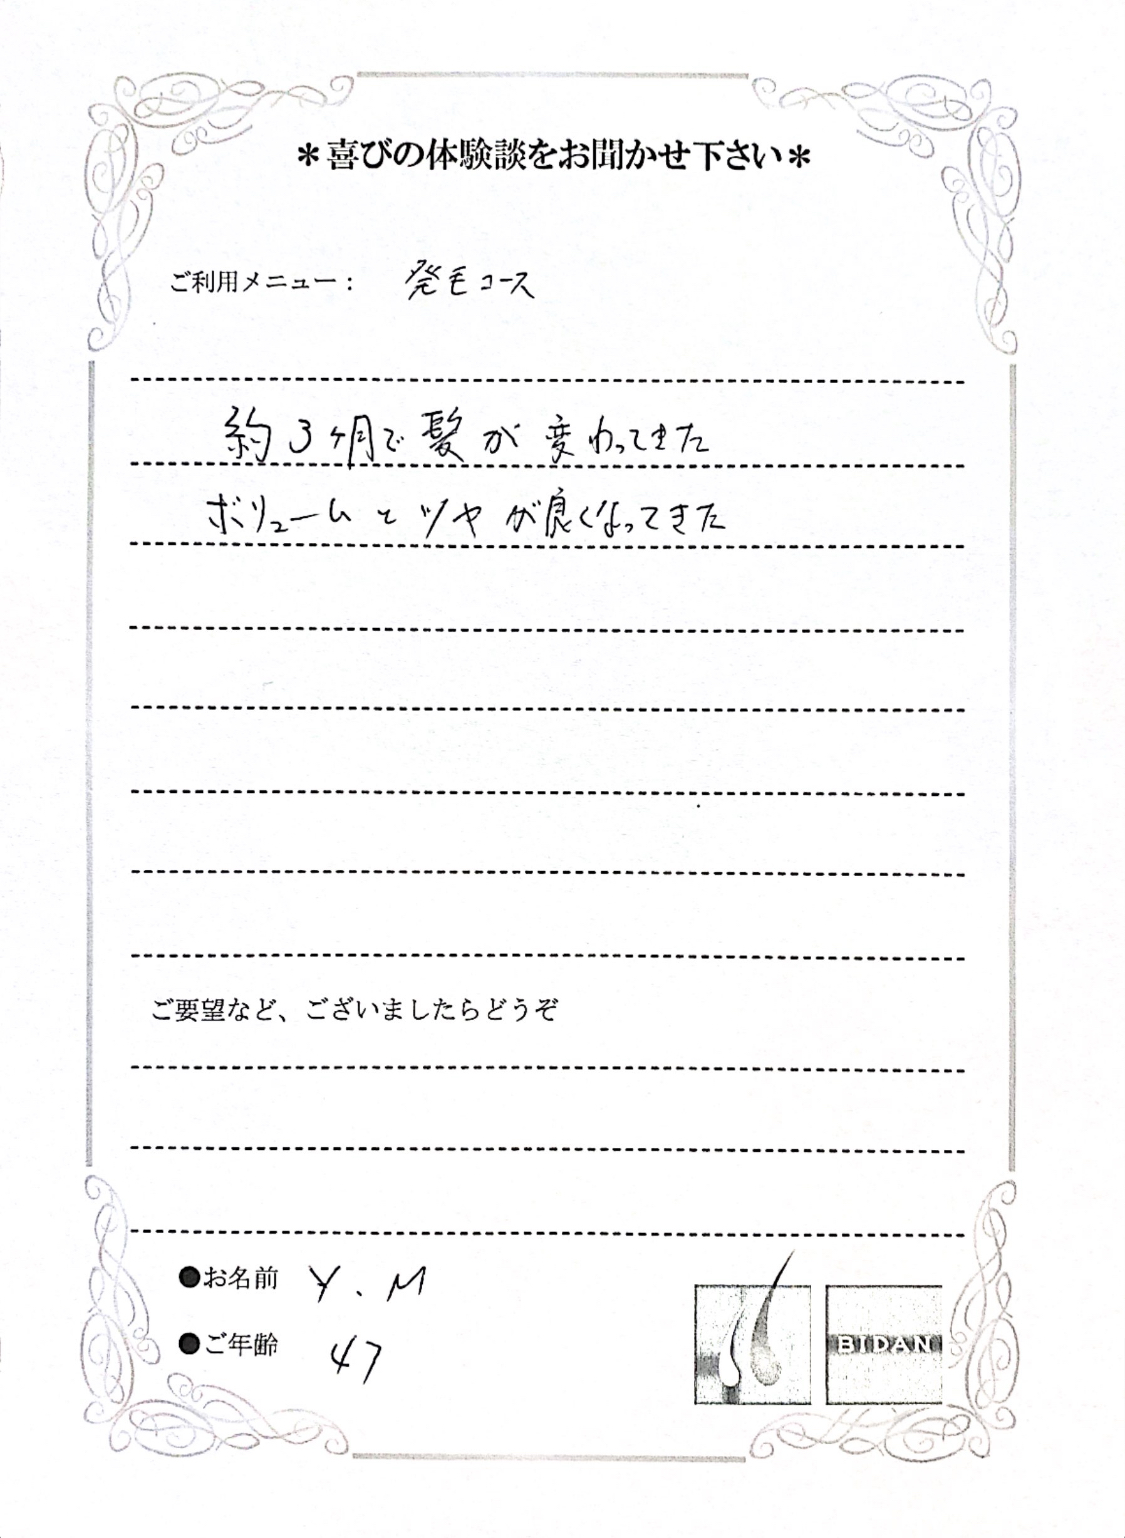 ＊喜びの体験談をお聞かせ下さい＊
ご利用メニュー： 発毛コース
約3ヶ月で髪が変わってきた
ボリュームとツヤが良くなってきた
ご要望など、ございましたらどうぞ
●お名前 Y.M
●ご年齢 47
BIDAN